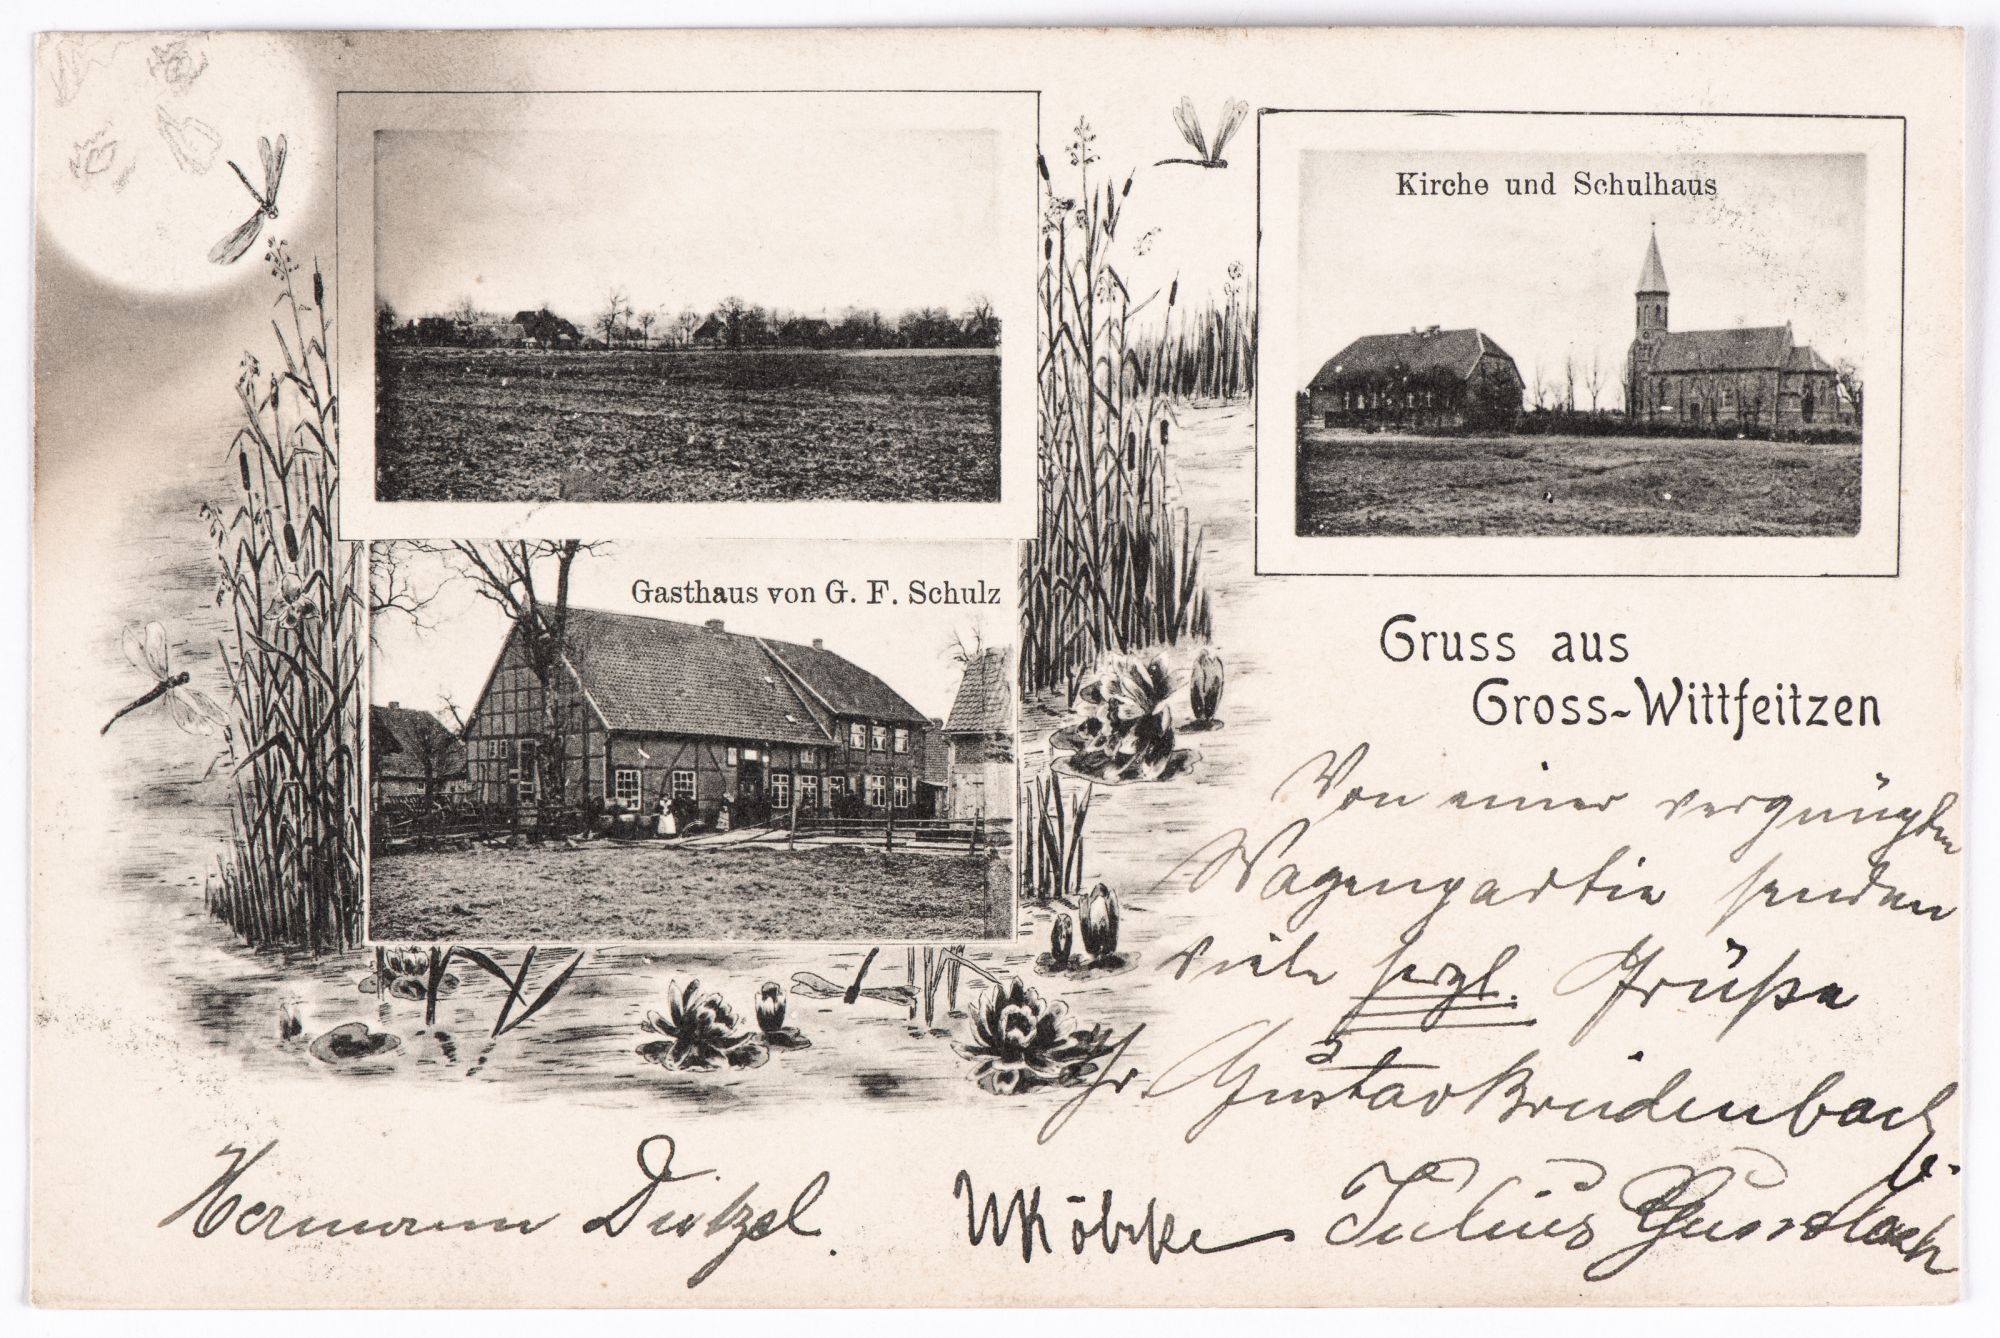 Kirche und Schulhaus
Gasthaus von G. F. Schulz
Gruss aus
Gross-Wittfeitzen
Von einer vergnügten
Wagenpartie senden
viele herzl. Grüße
Gustav Breidenbach
Hermann Dietzel.
Julius